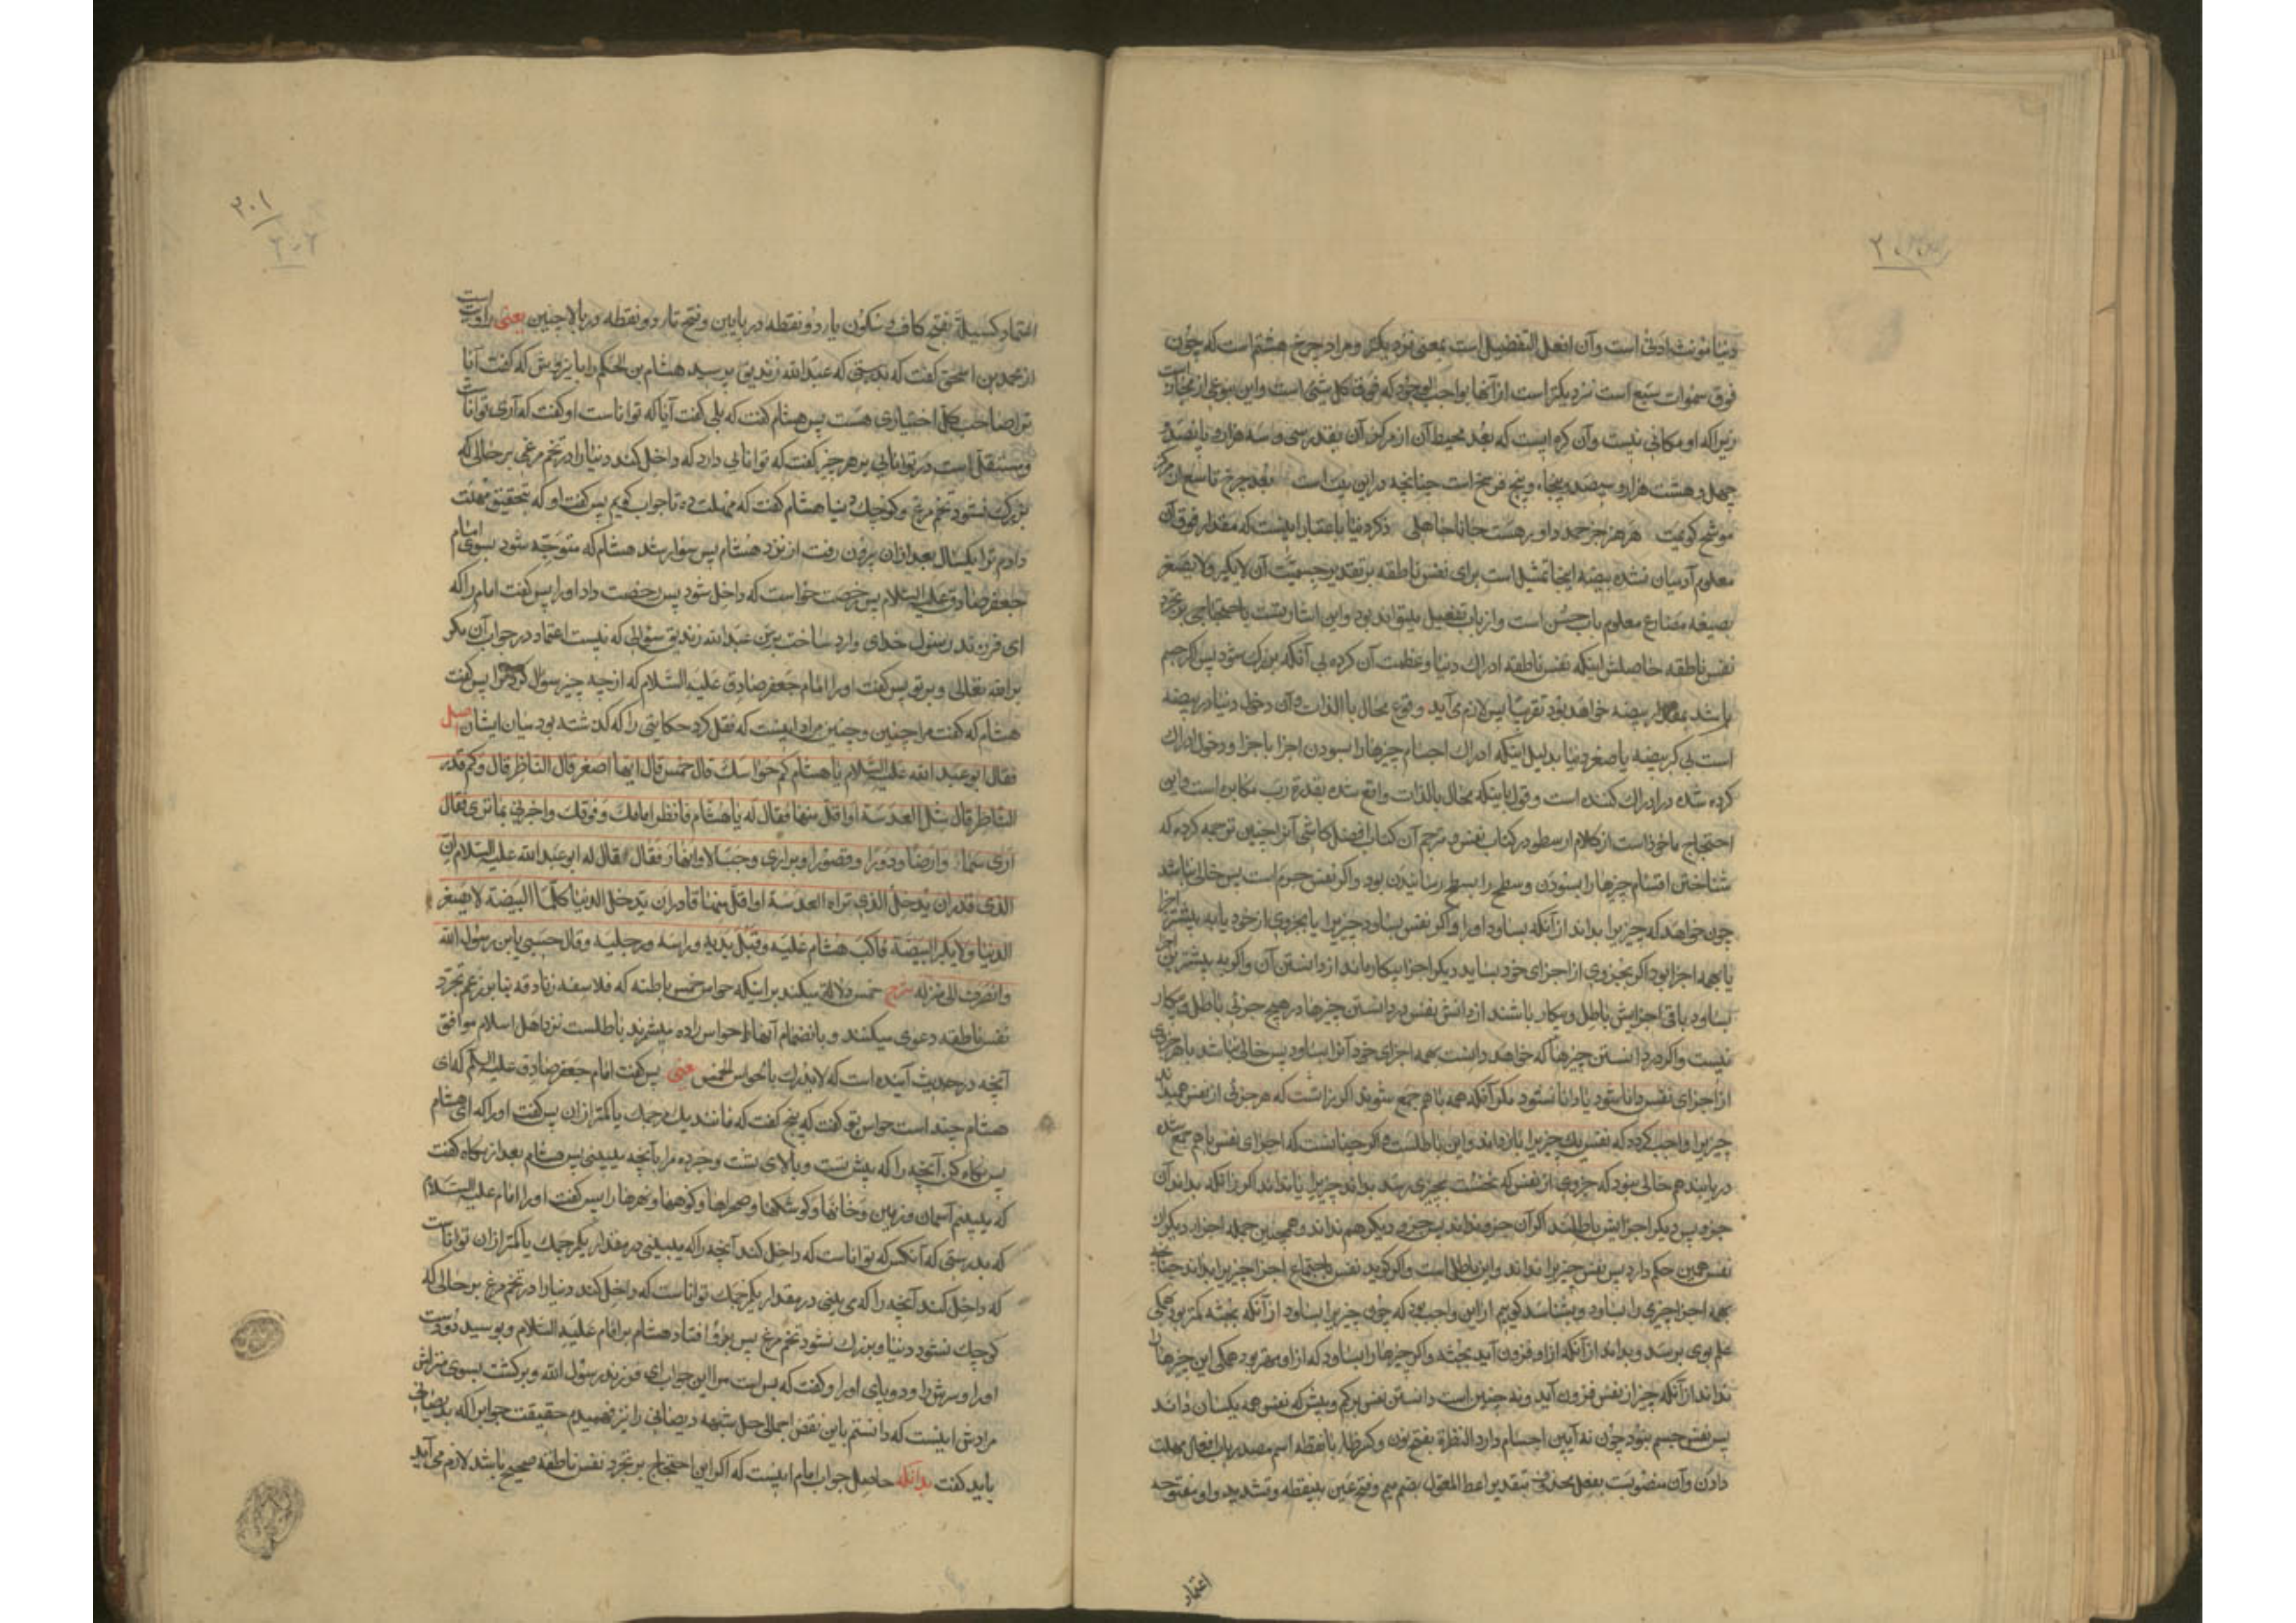 دنیا مؤنث ادنی است و آن افعل التفضیل است بمعنی نزدیکتر و مراد چرخ هشتم است که چون
فوق سموات سبع است نزدیکتر است از آنها بواجب الوجود که فوق کل شیء است و این نوعی از مجاز است
زیرا که او مکانی نیست و آن کره ایست که بعد محیط آن از مرکز آن بقدر سی و سه هزار و پانصد و
چهل و هشت هزار و سیصد و پنجاه و پنج فرسخ است چنانچه در این بیت است بعد چرخ تاسع از مرکز
معلوم آدمیان نشده بیضه اینجا تمثیل است برای نفس ناطقه بر تقدیر جسمیت آن لایکبر و لا یصغر
بصیغه مضارع معلوم باب حسن است و از باب تفعیل میتواند بود و این اشارتست باحتجاجی بر تجرد
نفس ناطقه حاصلش اینکه نفس ناطقه ادراک دنیا و عظمت آن کرده بی آنکه بزرک شود پس اکر جسم
باشد بمقدار بیضه خواهد بود تقریبا پس لازم می آید وقوع محال بالذات و آن دخول دنیا در بیضه
است بی کبر بیضه یا صغر دنیا بدلیل اینکه ادراک اجسام چیزها را بسودن اجزا باجزا و دخول ادراک
کرده شده در ادراک کننده است و قول باینکه محال بالذات واقع شده بقدرة رب مکابره است و این
احتجاج ماخوذ است از کلام ارسطو در کتاب نفس و مترجم آن کتاب افضل کاشی آنرا چنین ترجمه کرده که
شناختن اقسام چیزها را بسودن و سطح را بسطح رسانیدن بود و اکر نفس جرم است پس خالی نباشد
چون خواهد که چیزیرا بداند از آنکه بساود او را و اکر نفس بساود چیزیرا یا بجزوی از خود یا به بیشتر اجزا
یا بهمه اجزا بود اکر بجزوی از اجزای خود بساید دیکر اجزا بیکار ماند از دانستن آن و اکر به بیشترین اجزا
بساود باقی اجزایش باطل و بیکار باشند از دانش نفس در دانستن چیزها و هیچ جزئی باطل و بیکار
نیست و اکر در دانستن چیزها که خواهد دانست بهمه اجزای خود آنرا بساود پس خالی نباشد یا هر جزوی
از اجزای نفس دانا شود یا دانا نشود مکر آنکه همه با هم جمع شوند اکر زانست که هر جزئی از نفس
چیزیرا واجب کرده که نفس یک چیزیرا بارها داند و این باطلست و اکر چنانست که اجزای نفس با هم جمع شده
دریابند هم خالی نبود که جزوی از نفس که نخست بچیزی رسد بداند چیزیرا یا نداند اکر زانکه بداند آن
جزو پس دیکر اجزایش باطلند اکر آن جزو نداند پس جزوی دیکر هم نداند و همچنین جمله اجزاء دیکر از
نفس همین حکم دارد پس نفس چیزیرا نداند و این باطل است و اکر کوید نفس باجتماع اجزا چیزیرا بداند چنانچه
بهمه اجزا چیزی را بساود و بشناسد کوییم از این واجب بود که چون چیزیرا بساود از آنکه بجثه کمتر بود همکی
علم بوی برسد و بداند از آنکه از او فزون آید بجثه و اکر چیزها را بساود که از او مهتر بود همکی این چیزها را
نداند از آنکه چیز از نفس فزون آید و نه چنین است دانستن نفس بر کم و بیش که نفس همه یکسان داند
پس نفس جسم نبود چون نه آیین اجسام دارد النظرة بفتح نون و کسر ظاء با نقطه اسم مصدر باب افعال مهلت
دادن و آن منصوبست بفعل محذوف بتقدیر اعط المعول بضم میم و فتح عین بینقطه و تشدید واو مفتوحه
اعتماد
۳۰۱
۲۰۲
اعتماد کسبیلة بفتح کاف و سکون یاء دو نقطه در پایین و فتح تاء دو نقطه در بالا چنین یعنی روایت است
از محمد بن اسحق گفت که بدرستی که عبدالله زندیق پرسید هشام بن الحکم را باینروش که گفت آیا
ترا صاحب کل اختیاری هست پس هشام کفت که بلی کفت آیا که تواناست او کفت که آری تواناست
و مستقل است در توانایی بر هر چیز کفت که توانایی دارد که داخل کند دنیا را در تخم مرغی بر حالی که
بزرک نشود تخم مرغ و کوچک دنیا هشام کفت که مهلت ده تا جواب کویم پس کفت او که بتحقیق مهلت
دادم ترا یکسال بعد از آن بیرون رفت از نزد هشام پس سوار شد هشام که متوجه شود بسوی امام
جعفر صادق علیه السلام پس رخصت خواست که داخل شود پس رخصت داد او را پس کفت امام را که
ای فرزند رسول خدای وارد ساخت بر من عبدالله زندیق سؤالی که نیست اعتماد در جواب آن مکر
بر الله تعالی و بر تو پس کفت او را امام جعفر صادق علیه السلام که از چه چیز سؤال کرد ترا پس کفت
هشام که کفت مرا چنین و چنین مراد اینست که نقل کرد حکایتی را که کذشته بود میان ایشان اصل
فقال ابو عبد الله علیه السلام یا هشام کم حواسک قال خمس قال ایها اصغر قال الناظر قال و کم قدر
الناظر قال مثل العدسة او اقل منها فقال له یا هشام فانظر امامک و فوقک و اخبرنی بما تری فقال
اری سماء و ارضا و دورا و قصورا و براری و جبالا و انهارا فقال قال له ابو عبد الله علیه السلام ان
الذی قدر ان یدخل الذی تراه العدسة او اقل منها قادر ان یدخل الدنیا کلها البیضة لا یصغر
الدنیا و لا یکبر البیضة فاکب هشام علیه و قبل یدیه و راسه و رجلیه و قال حسبی یا بن رسول الله
و انصرف الی منزله شرح خمس دلالة میکند بر اینکه حواس خمس باطنه که فلاسفه زنادقه بنا بر زعم تجرد
نفس ناطقه دعوی میکنند و بانضمام آنها حواس را ده میشمرند باطلست نزد اهل اسلام موافق
آنچه در حدیث آینده است که لا یدرک بالحواس الخمس یعنی پس کفت امام جعفر صادق علیه السلام که ای
هشام چند است حواس تو کفت که پنج کفت که مانند یک مرجمک یا کمتر از آن پس کفت او را که ای هشام
پس نکاه کن آنچه را که پیش تست و بالای تست و خبر ده مرا بآنچه میبینی پس هشام بعد از نکاه کفت
که میبینم آسمان و زمین و خانها و کوشکها و صحراها و کوهها و نهرها را پس کفت او را امام علیه السلام
که بدرستی که آنکس که تواناست که داخل کند آنچه را که میبینی در مقدار یکمرجمک یا کمتر از آن تواناست
که داخل کند آنچه را که می بینی در مقدار یکمرجمک تواناست که داخل کند دنیا را در تخم مرغ بر حالی که
کوچک نشود دنیا و بزرک نشود تخم مرغ پس برو افتاد هشام بر امام علیه السلام و بوسید دو دست
او را و سرش را و دو پای او را و کفت که بس است مرا این جواب ای فرزند رسول الله و برکشت بسوی منزلش
مرادش اینست که دانستم باین نقض اجمالی حل شبهه دیصانی را نیز فهمیدم حقیقت جوابرا که بدیصانی
باید کفت بدانکه حاصل جواب امام اینست که اکر این احتجاج بر تجرد نفس ناطقه صحیح باشد لازم می آید